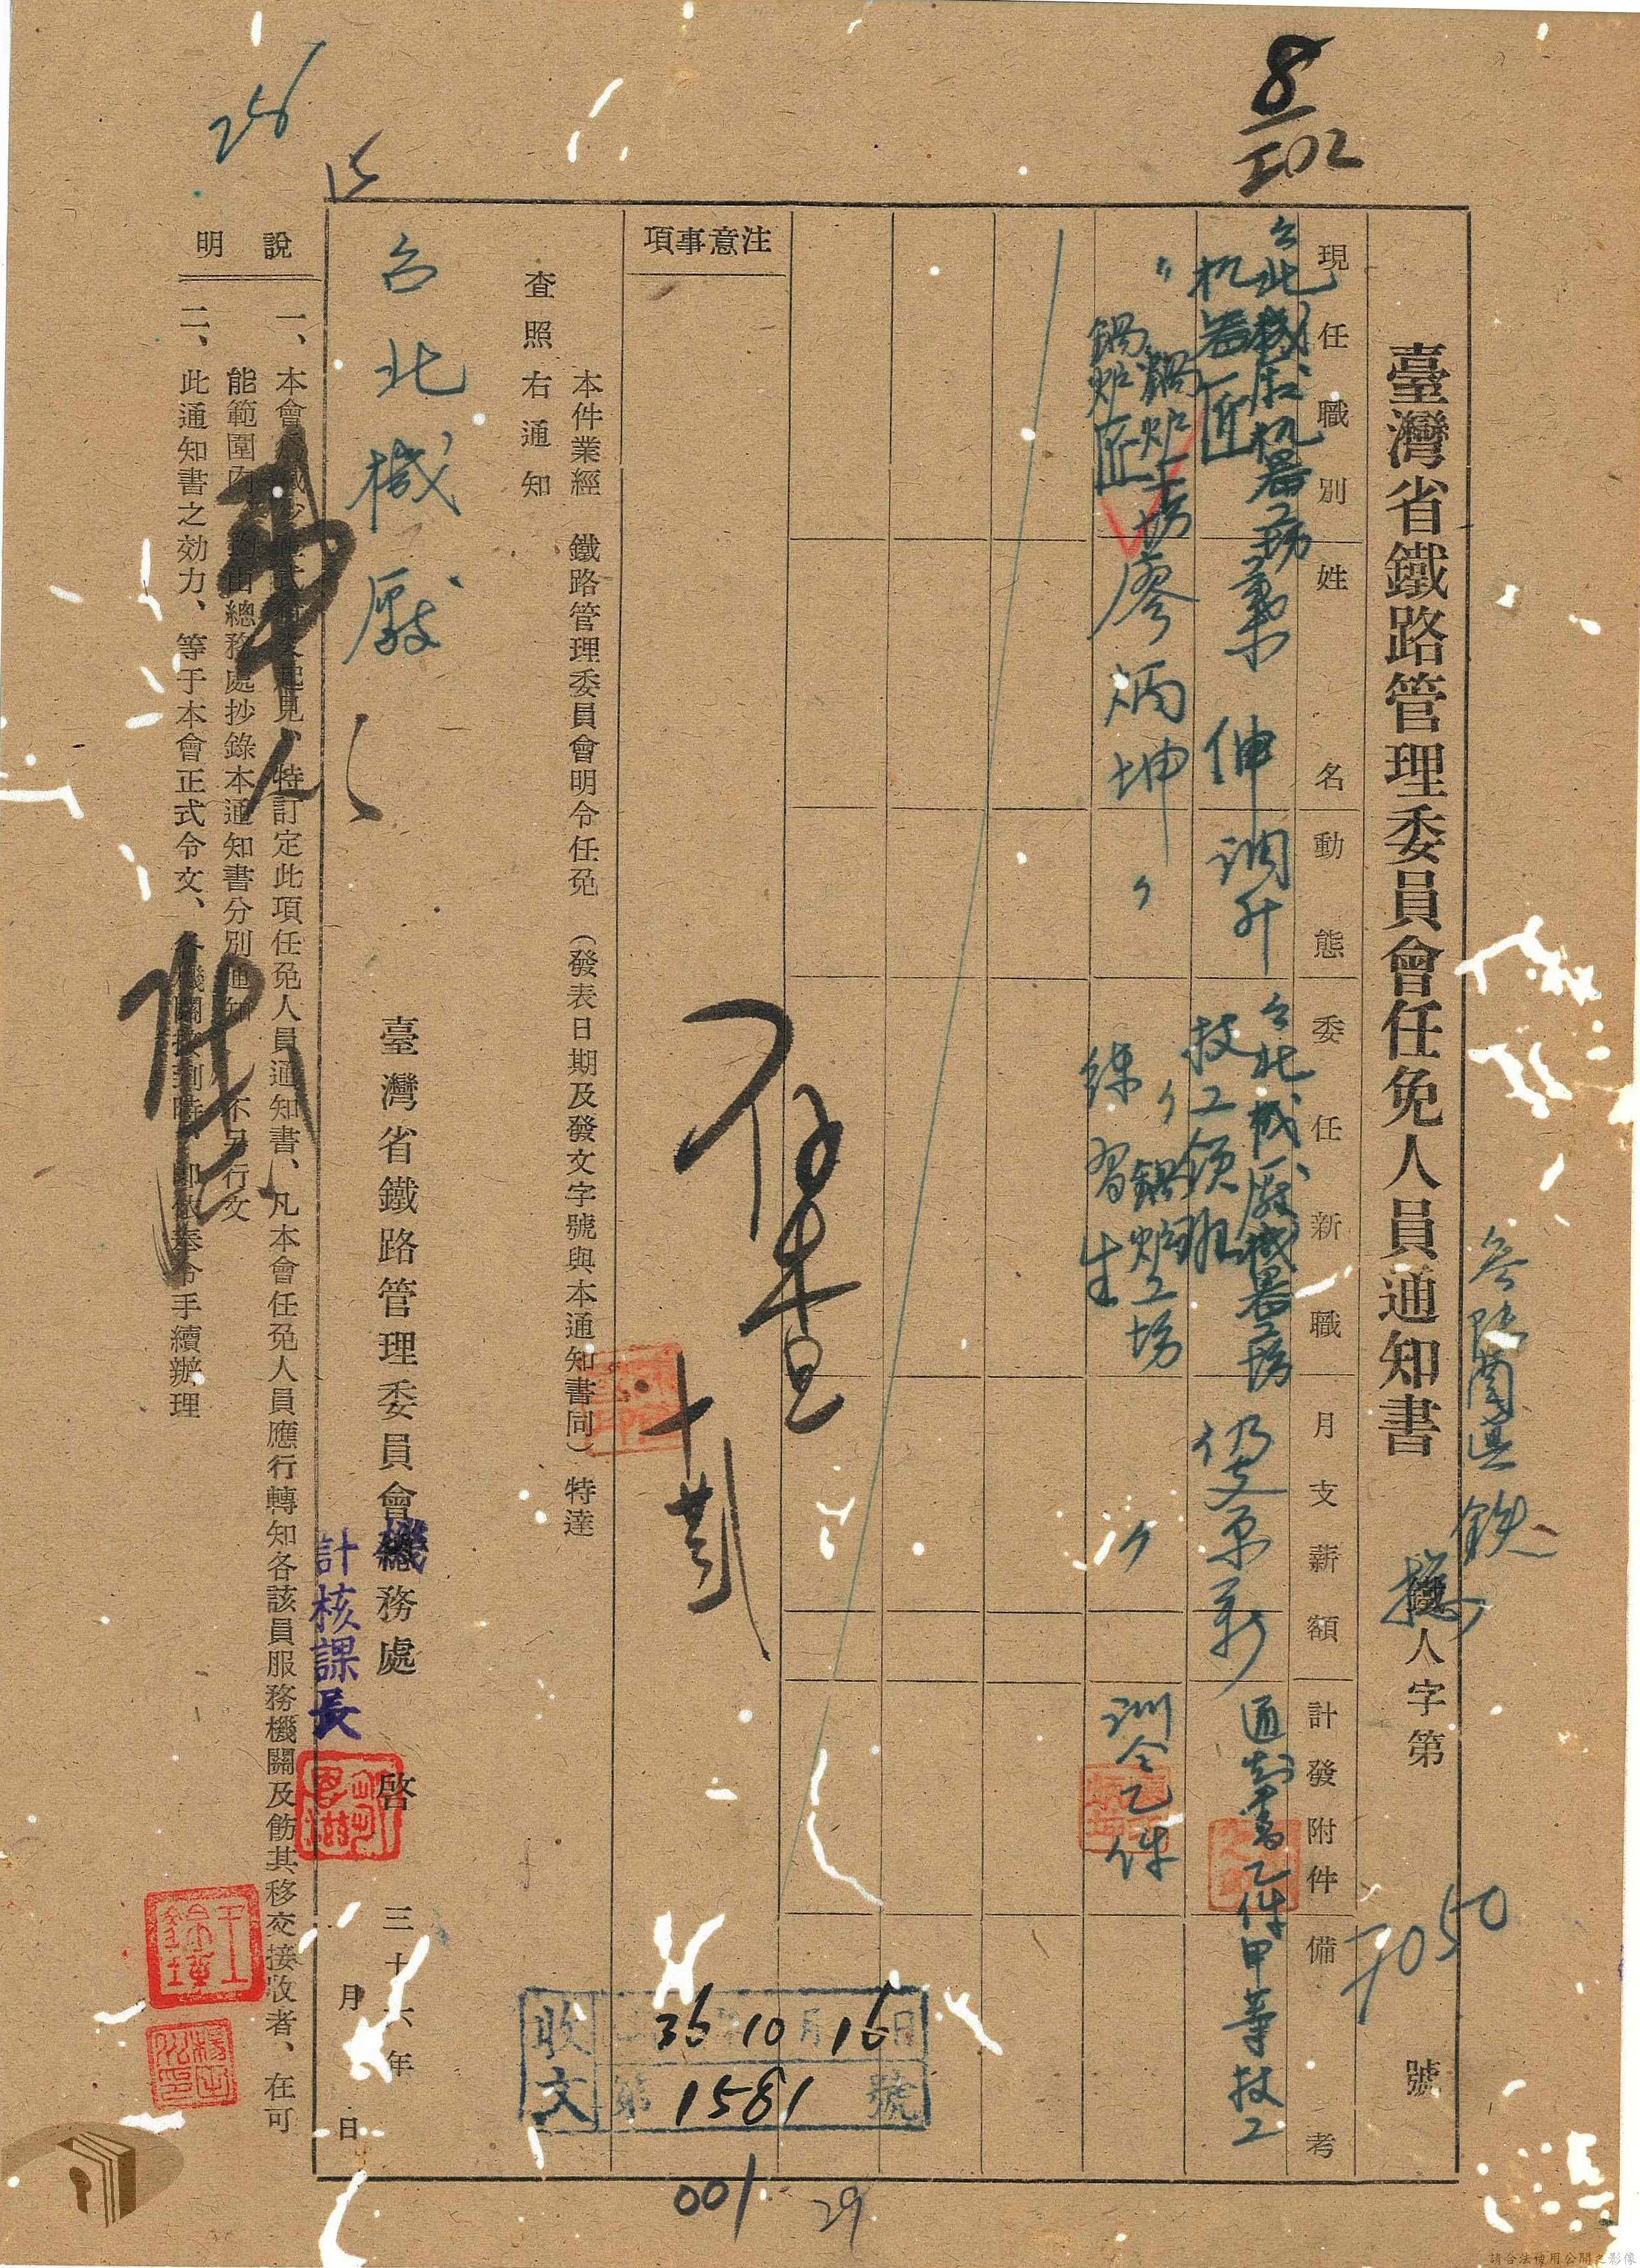 8
IO2
臺灣省鐵路管理委員會任免人員通知書
人字第 7050 號
現任職別
姓名
動態
委任新職
月支薪額
計發附件
備考
台北機廠机器工場
机器匠
葉 伸
調升
台北機廠機器工場
技工領班
仍支原薪
通知書乙件
甲等技工
〃 鍋炉工場
鍋炉匠
廖炳坤
〃
〃 鍋炉工場
練習生
〃
訓令乙件
注意事項
本件業經 鐵路管理委員會明令任免 (發表日期及發文字號與本通知書同) 特達
查照 右通知
台北機廠
臺灣省鐵路管理委員會機務處 啓
計核課長
三十六年 月 日
說明
一、本會 特訂定此項任免人員通知書、凡本會任免人員應行轉知各該員服務機關及飭其移交接收者、在可
能範圍內 由總務處抄錄本通知書分別通知 不另行文
二、此通知書之効力、等于本會正式令文、各機關接到時 卽依奉令手續辦理
收文
36 10月16日
第1581號
001
29
256
15
請合法使用公開之影像